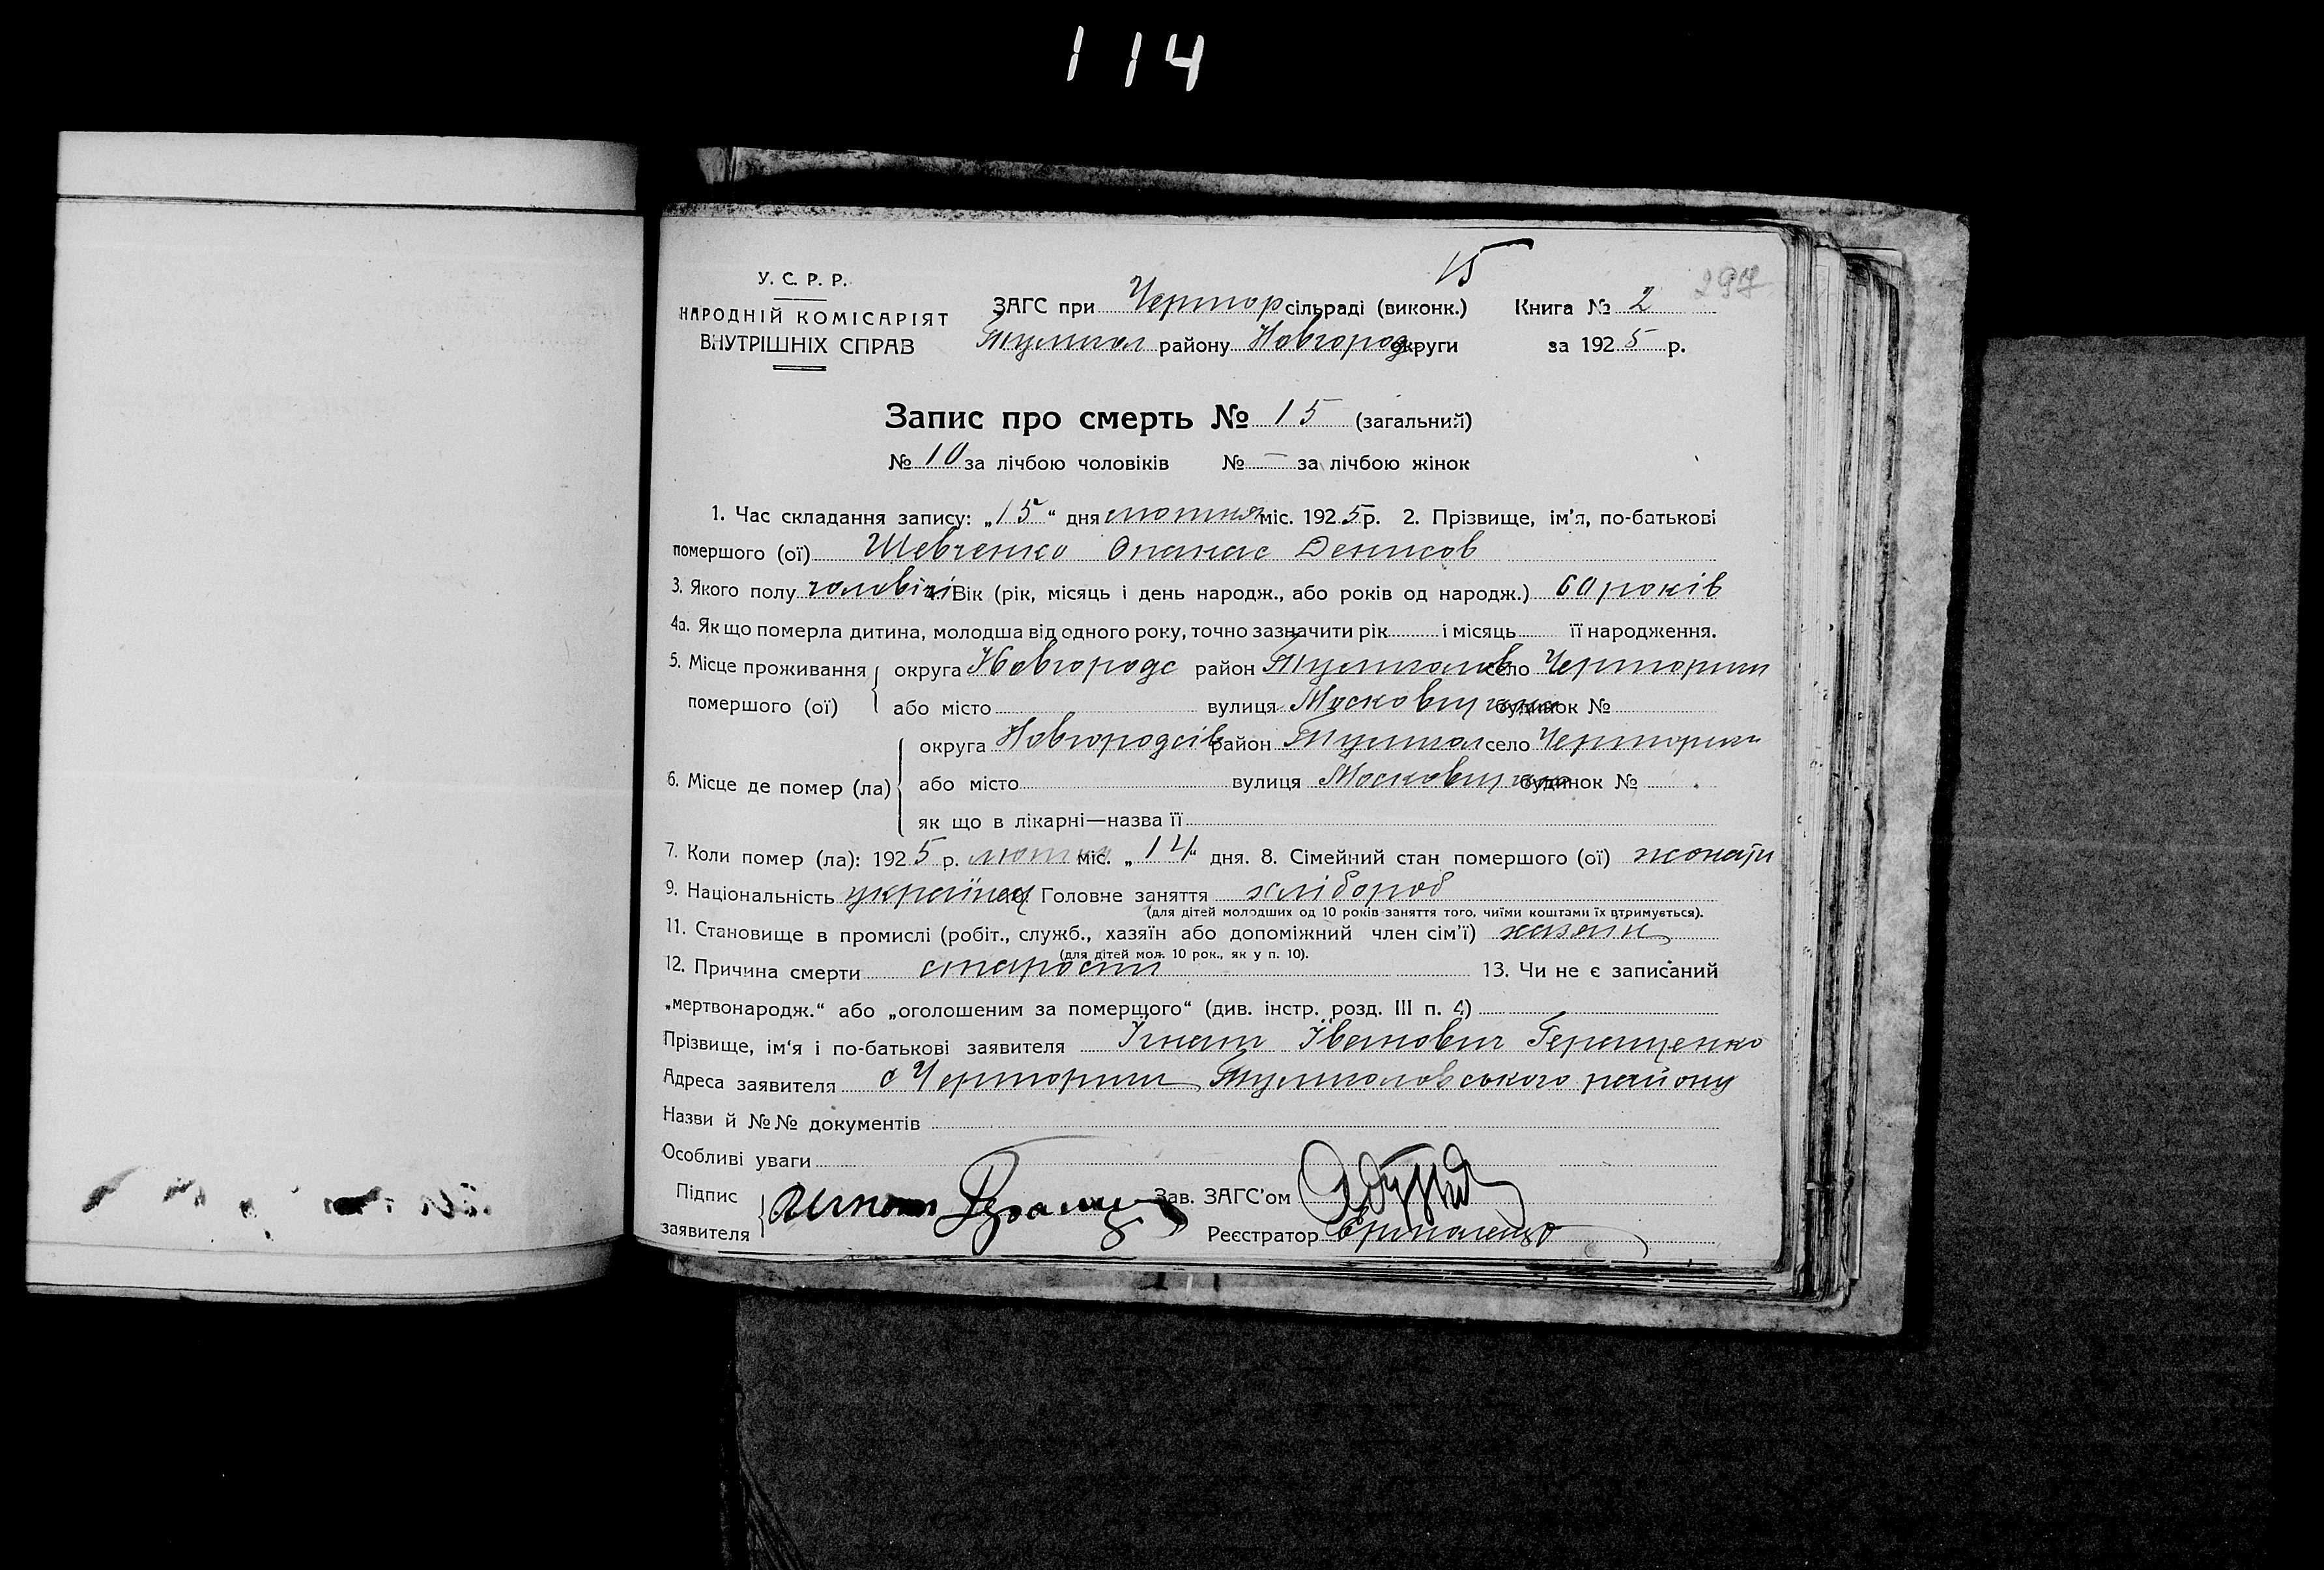 114
15
297
У. С. Р. Р.
НАРОДНІЙ КОМІСАРІЯТ
ВНУТРІШНІХ СПРАВ
ЗАГС при Чертор сільраді (виконк.) Книга № 2
району Новгород округи за 1925 р.
Запис про смерть № 15 (загальний)
№ 10 за лічбою чоловіків № – за лічбою жінок
1. Час складання запису: „15“ дня лютня міс. 1925 р. 2. Прізвище, ім'я, по-батькові
помершого (ої) Шевченко Опанас Денисов
3. Якого полу чоловічі Вік (рік, місяць і день народж., або років од народж.) 60 років
4а. Як що померла дитина, молодша від одного року, точно зазначити рік і місяць її народження.
5. Місце проживання округа Новгородс район село Черториги
помершого (ої) або місто вулиця Московщина будинок №
округа Новгородсів район село Черториги
6. Місце де помер (ла) або місто вулиця Московщина будинок №
як що в лікарні—назва її
7. Коли помер (ла): 1925 р. лютня міс. „14“ дня. 8. Сімейний стан помершого (ої) жонати
9. Національність українец Головне заняття хлібороб
(для дітей молодших од 10 років заняття того, чиїми коштами їх втримується).
11. Становище в промислі (робіт., служб., хазяїн або допоміжний член сім'ї) хазяин
(для дітей мол. 10 рок., як у п. 10).
12. Причина смерти старости 13. Чи не є записаний
„мертвонародж.“ або „оголошеним за померщого“ (див. інстр. розд. III п. 4)
Прізвище, ім'я і по-батькові заявителя Ігнат Іванович Геращенко
Адреса заявителя с Черториги району
Назви й №№ документів
Особливі уваги
Підпис Зав. ЗАГС'ом
заявителя Реєстратор